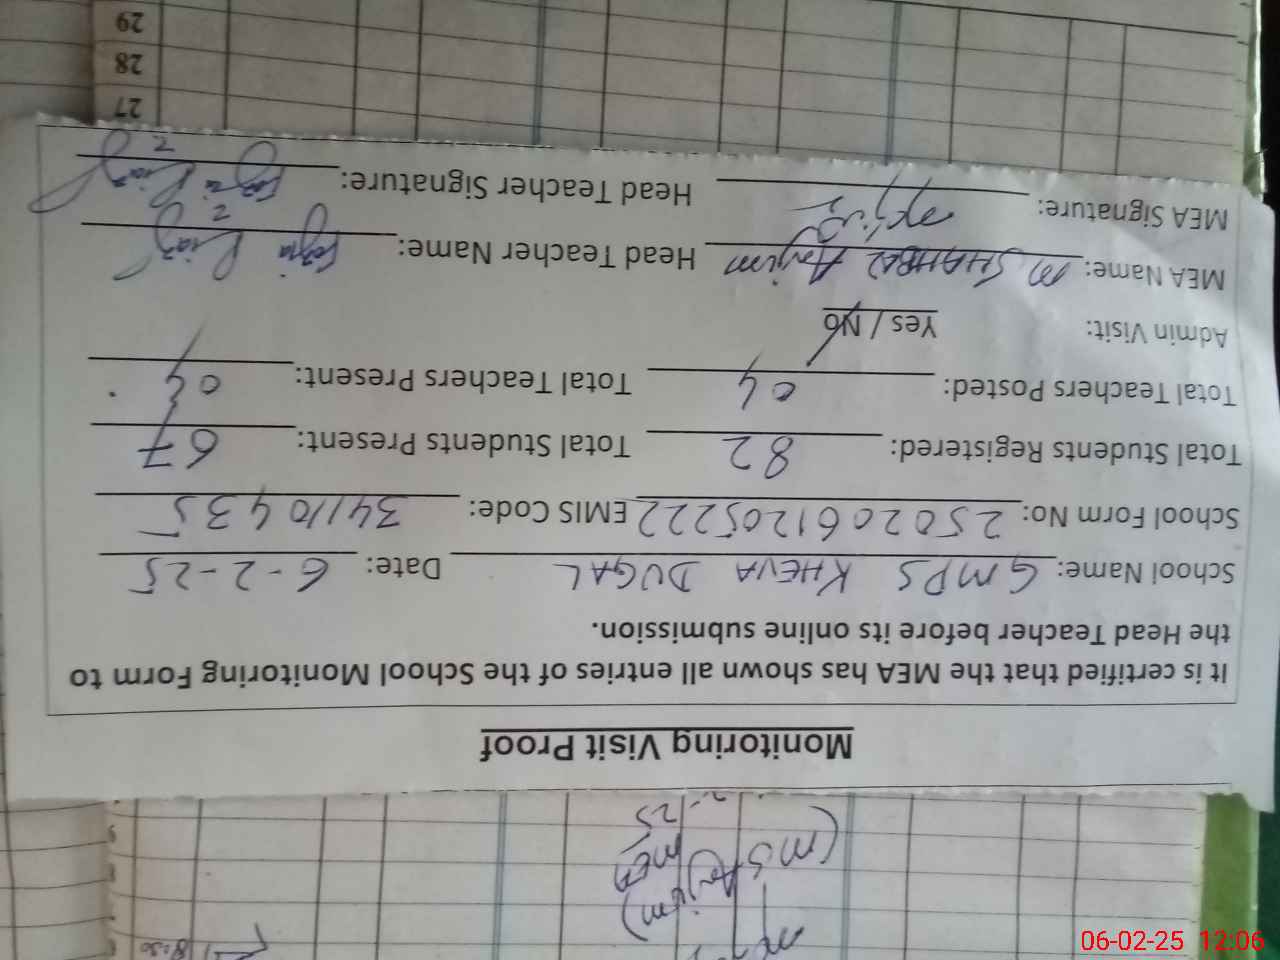 Monitoring Visit Proof
It is certified that the MEA has shown all entries of the School Monitoring Form to
the Head Teacher before its online submission.
School Name: GMPS KHEVA DUGAL Date: 6-2-25
School Form No: 2502061205222 EMIS Code: 34110435
Total Students Registered: 82 Total Students Present: 67
Total Teachers Posted: 04 Total Teachers Present: 04
Admin Visit: Yes / No
MEA Name: M. SHAHBAZ Anjum Head Teacher Name: Fozia Riaz
MEA Signature: Head Teacher Signature: Fozia Riaz
27
28
29
(MS Anjum)
MEA
8:30
06-02-25 12:06